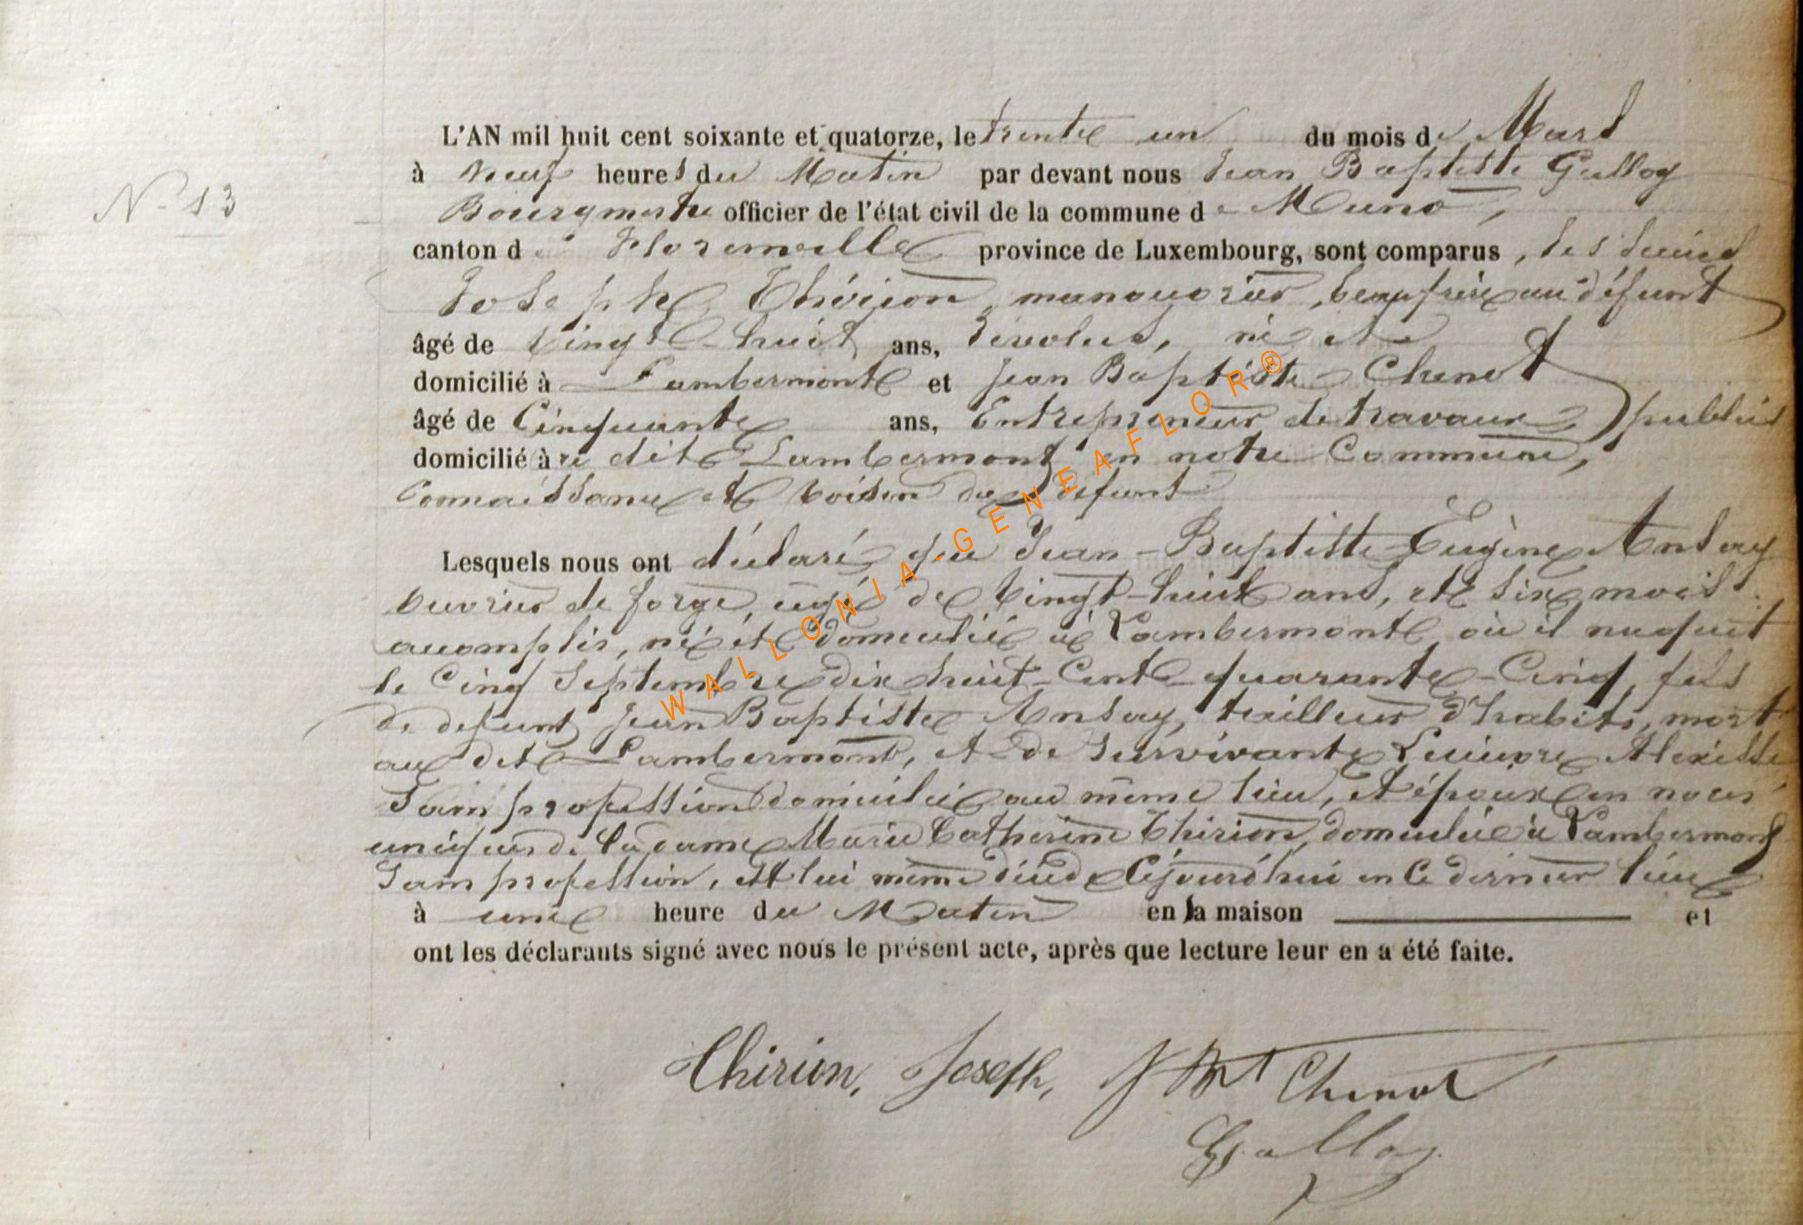 N° 13
L'AN mil huit cent soixante et quatorze, le trente un du mois de Mars
à neuf heures du Matin par devant nous Jean Baptiste Galloy
Bourgmestre officier de l'état civil de la commune de Muno,
canton de Florenville province de Luxembourg, sont comparus, les
Joseph Thirion, manouvrier, beau frère au défunt
âgé de vingt-huit ans, révolus, né et
domicilié à Lambermont et Jean Baptiste Chenot
âgé de Cinquante ans, Entrepreneur de travaux publics
domicilié à dit Lambermont en notre Commune,
Connaissance et voisin du défunt
Lesquels nous ont déclaré que Jean-Baptiste Eugène Ansay
ouvrier de forge, âgé de vingt-huit ans, et six mois
accomplis, né et domicilié à Lambermont où il naquit
le Cinq Septembre dix huit-Cent-quarante-Cinq, fils
de defunt Jean Baptiste Ansay, tailleur d'habits, mort
au dit Lambermont, et de survivante Alexisse
Sans profession domiciliée au même lieu, et époux en noces
uniques de la dame Marie Catherine Thirion, domiciliée à Lambermont
Sans profession, est lui même décédé Cejourd'hui en Ce dernier lieu
à une heure du Matin en la maison et
ont les déclarants signé avec nous le présent acte, après que lecture leur en a été faite.
Thirion, Joseph, J Bt Chenot
Galloy
WALLONIA-GENEAFLOR®